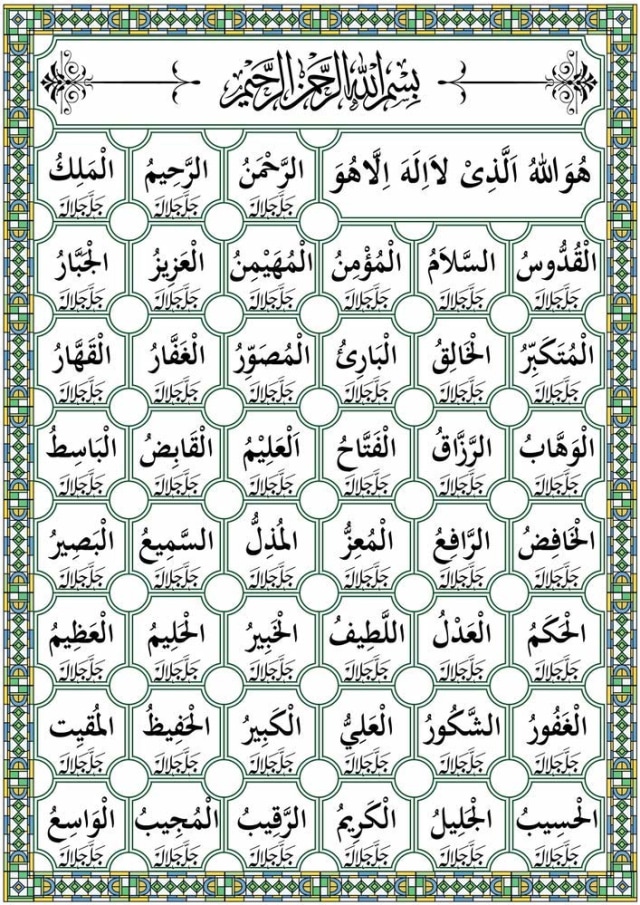 بِسْمِ اللهِ الرَّحْمٰنِ الرَّحِيْمِ
هُوَ اللهُ اَلَّذِىْ لاَاِلَهَ اِلَّاهُوَ الرَّحْمٰنُ الرَّحِيمُ الْمَلِكُ
جَلَّجَلَالَهُ جَلَّجَلَالَهُ جَلَّجَلَالَهُ
الْقُدُّوسُ السَّلاَمُ الْمُؤْمِنُ الْمُهَيْمِنُ الْعَزِيزُ الْجَبَّارُ
جَلَّجَلَالَهُ جَلَّجَلَالَهُ جَلَّجَلَالَهُ جَلَّجَلَالَهُ جَلَّجَلَالَهُ جَلَّجَلَالَهُ
الْمُتَكَبِّرُ الْخَالِقُ الْبَارِئُ الْمُصَوِّرُ الْغَفَّارُ الْقَهَّارُ
جَلَّجَلَالَهُ جَلَّجَلَالَهُ جَلَّجَلَالَهُ جَلَّجَلَالَهُ جَلَّجَلَالَهُ جَلَّجَلَالَهُ
الْوَهَّابُ الرَّزَّاقُ الْفَتَّاحُ اَلْعَلِيْمُ الْقَابِضُ الْبَاسِطُ
جَلَّجَلَالَهُ جَلَّجَلَالَهُ جَلَّجَلَالَهُ جَلَّجَلَالَهُ جَلَّجَلَالَهُ جَلَّجَلَالَهُ
الْخَافِضُ الرَّافِعُ الْمُعِزُّ الْمُذِلُّ السَّمِيعُ الْبَصِيرُ
جَلَّجَلَالَهُ جَلَّجَلَالَهُ جَلَّجَلَالَهُ جَلَّجَلَالَهُ جَلَّجَلَالَهُ جَلَّجَلَالَهُ
الْحَكَمُ الْعَدْلُ اللَّطِيفُ الْخَبِيرُ الْحَلِيمُ الْعَظِيمُ
جَلَّجَلَالَهُ جَلَّجَلَالَهُ جَلَّجَلَالَهُ جَلَّجَلَالَهُ جَلَّجَلَالَهُ جَلَّجَلَالَهُ
الْغَفُورُ الشَّكُورُ الْعَلِيُّ الْكَبِيرُ الْحَفِيظُ المُقيِت
جَلَّجَلَالَهُ جَلَّجَلَالَهُ جَلَّجَلَالَهُ جَلَّجَلَالَهُ جَلَّجَلَالَهُ جَلَّجَلَالَهُ
الْحَسِيبُ الْجَلِيلُ الْكَرِيمُ الرَّقِيبُ الْمُجِيبُ الْوَاسِعُ
جَلَّجَلَالَهُ جَلَّجَلَالَهُ جَلَّجَلَالَهُ جَلَّجَلَالَهُ جَلَّجَلَالَهُ جَلَّجَلَالَهُ